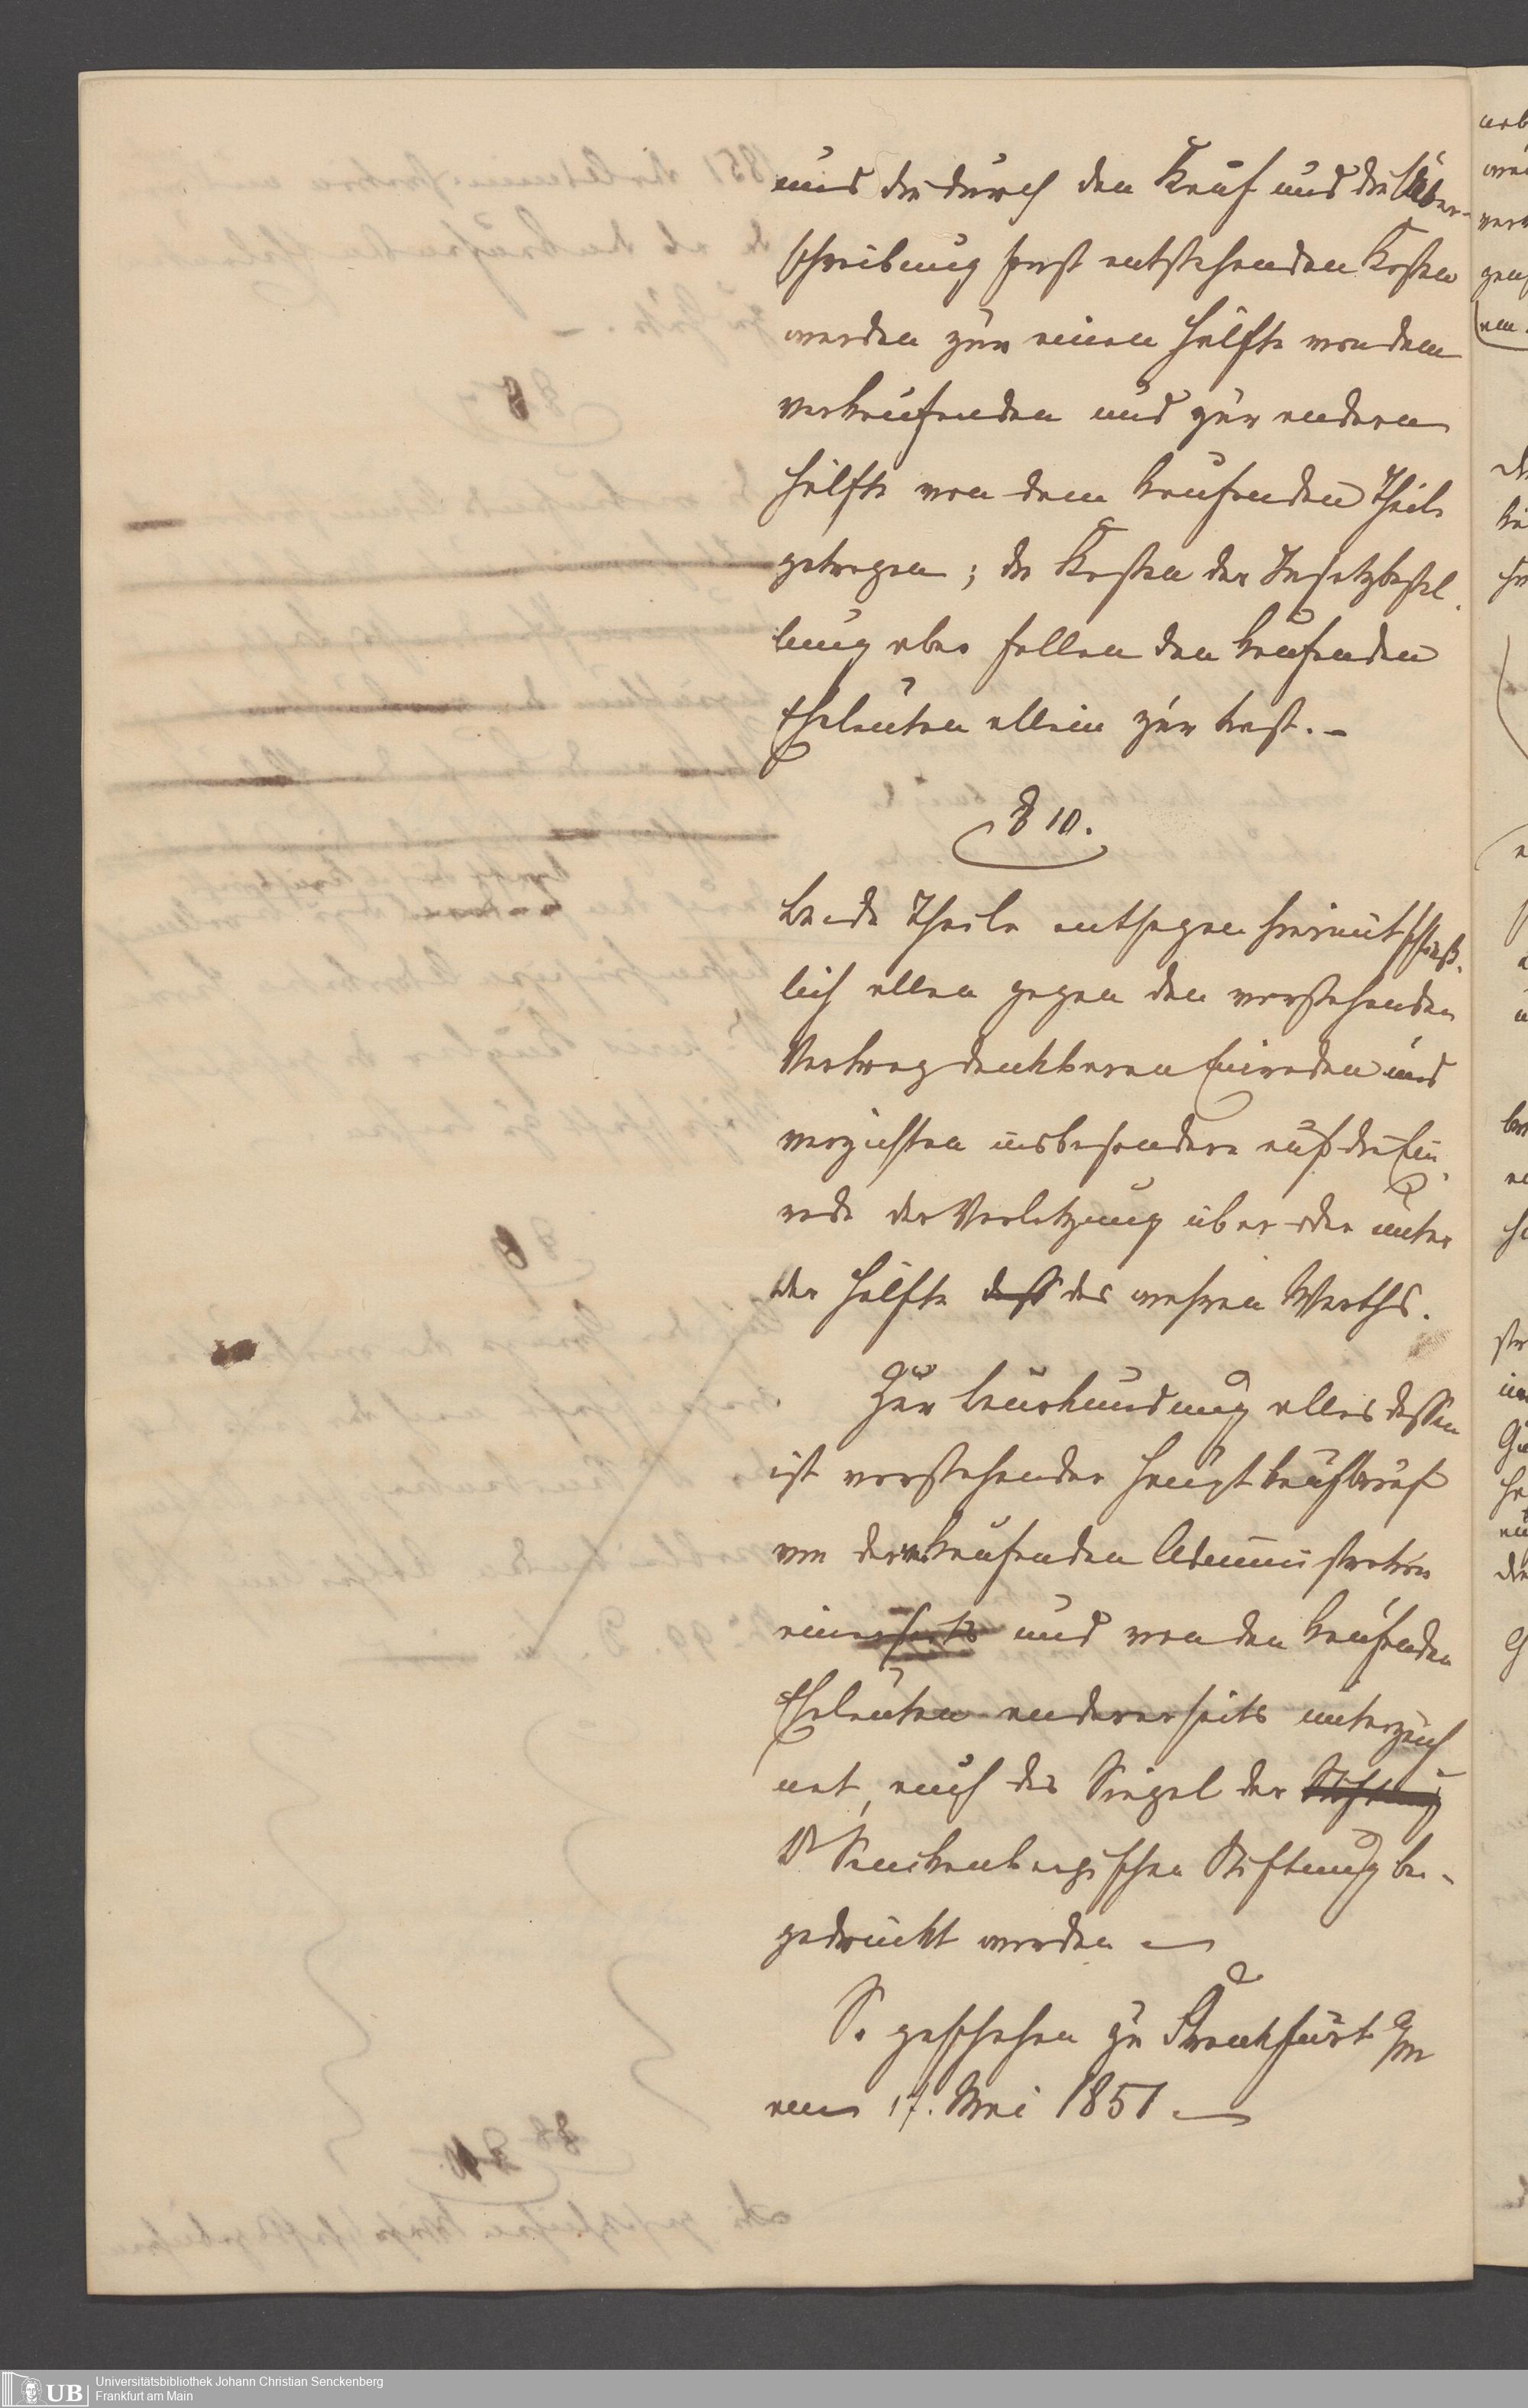 und die durch den Kauf und die Über-
schreibung sonst entstehenden Kosten
werden zur einen Hälfte von dem
verkaufenden und zur anderen
Hälfte von dem kaufenden Theile
getragen; die Kosten der Insatzbestel-
lung aber fallen den kaufenden
Eheleuten allein zur Last. -
§ 10.
Beide Theile entsagen hiermit schließ-
lich allen gegen den vorstehenden
Vertrag denkbaren Einreden und
verzichten insbesondere auf die Ein-
rede der Verletzung über oder unter
der Hälfte des wahren Werths.
Zur Beurkundung alles dessen
ist vorstehender Hauptkaufbrief
von der verkaufenden Administration
einerseits und von den kaufenden
Eheleuten andererseits unterzeich
net, auch das Siegel der Stiftung
Dr Senckenbergischen Stiftung bei-
gedruckt worden
So geschehen zu Frankfurt a/m
am 17. Mai 1851
UB
Universitätsbibliothek Johann Christian Senckenberg
Frankfurt am Main